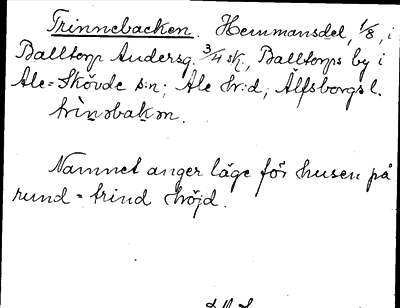 Trinnebacken. Hemmansdel, 1/8, i
Balltorp Andersg. 3/4 sk., Balltorps by i
Ale=Skövde s:n; Ale hr:d; Älfsborgs l.
trìnəbakən.
Namnet anger läge för husen på
rund = trind höjd.